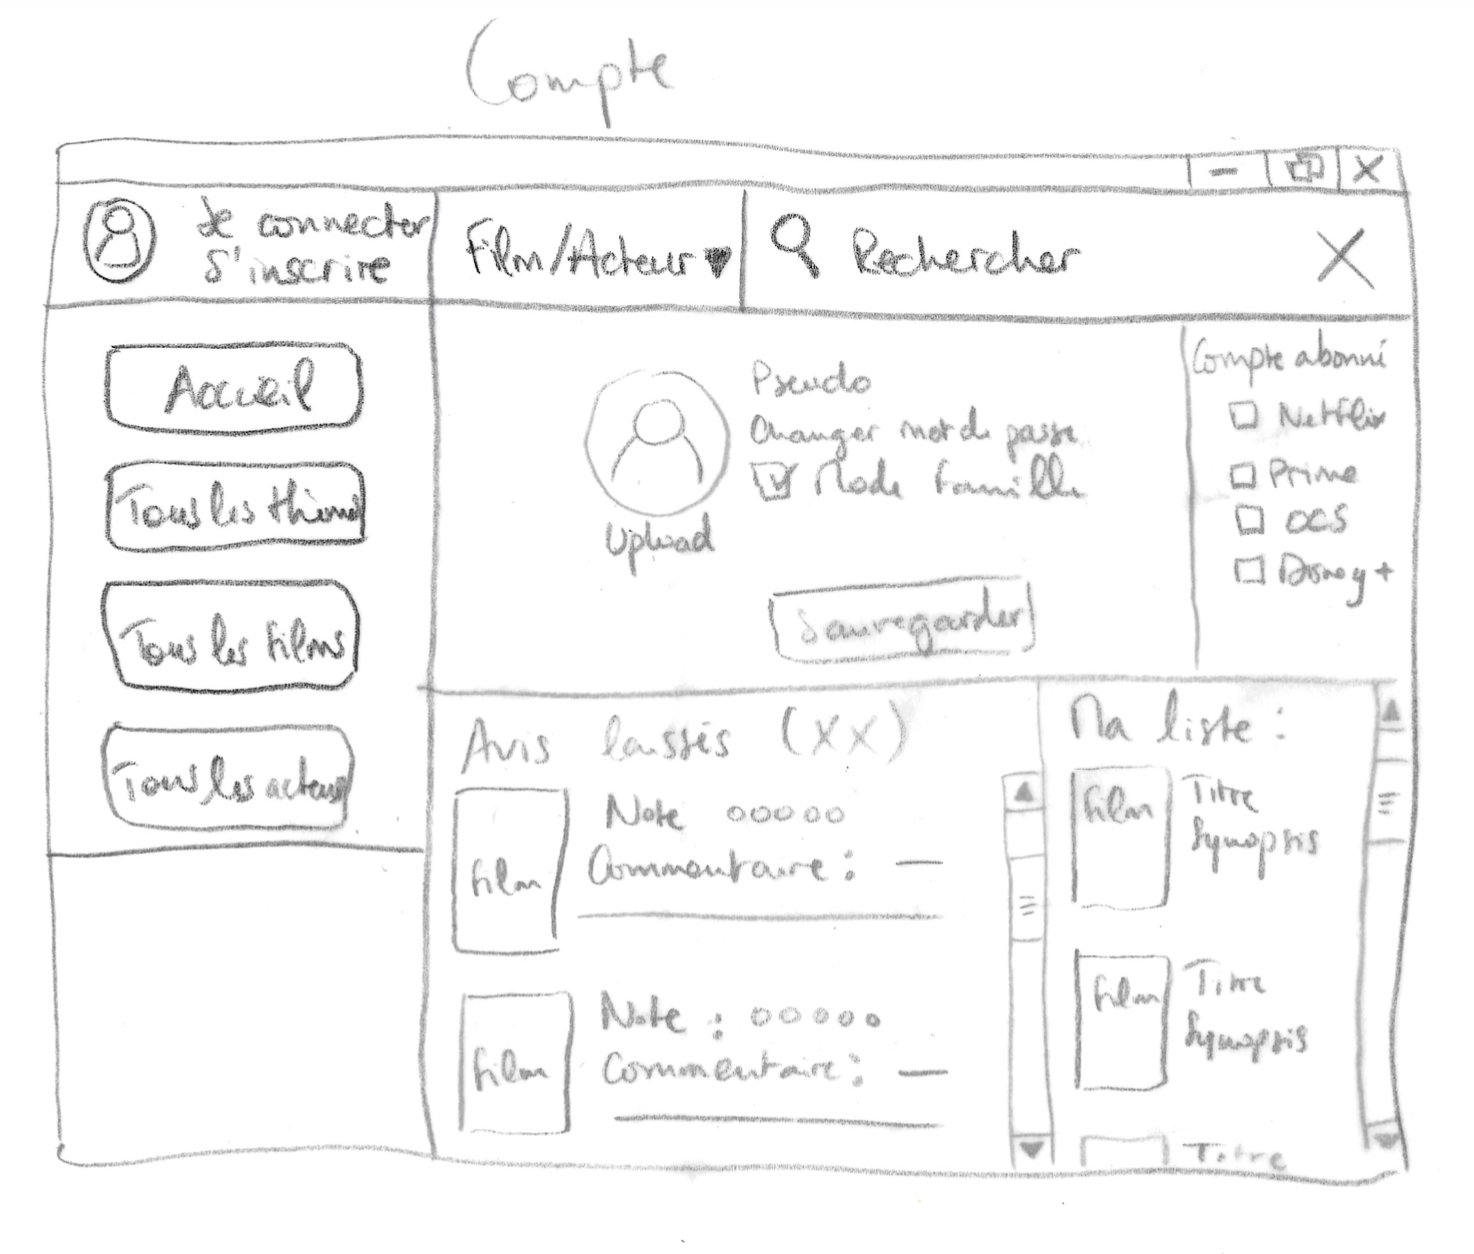 Compte
Se connecter
S'inscrire
Film/Acteur
Rechercher
Accueil
Tous les thèmes
Tous les films
Tous les acteurs
Upload
Pseudo
Changer mot de passe
Mode famille
Sauvegarder
Compte abonné
Netflix
Prime
OCS
Disney +
Avis laissés (XX)
film
Note ooooo
Commentaire :
film
Note : ooooo
Commentaire :
Ma liste :
film
Titre
Synopsis
film
Titre
Synopsis
Titre